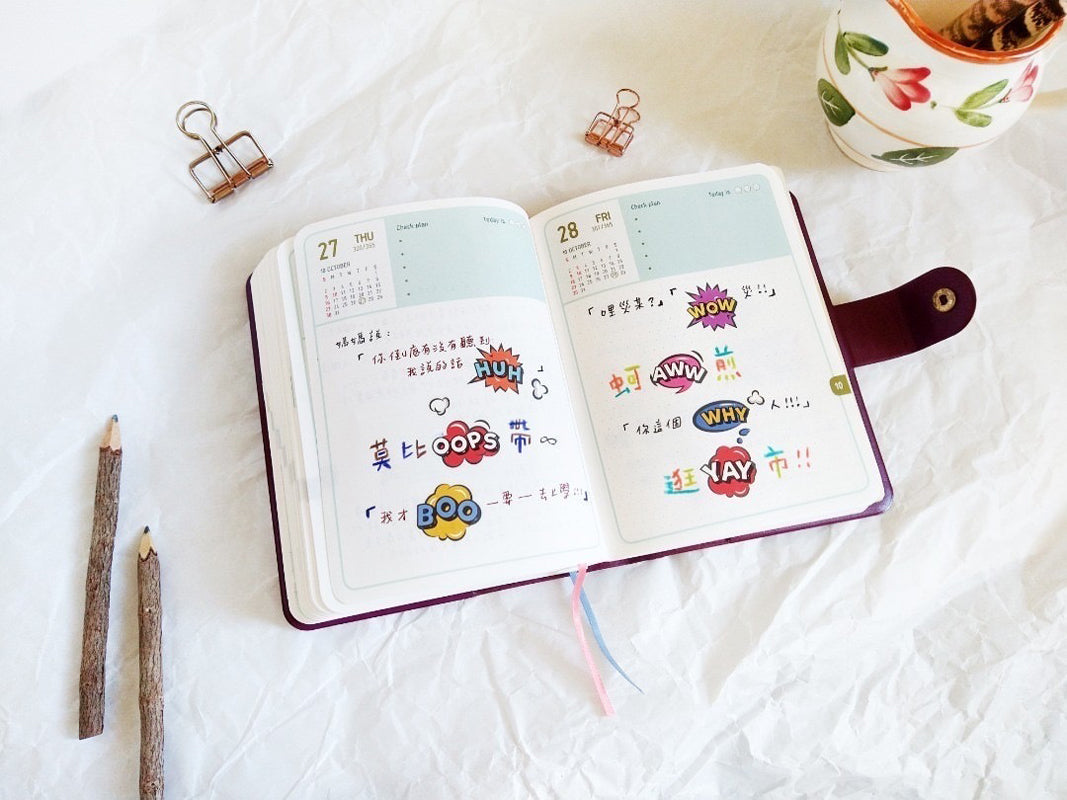 27 THU
Check plan
Today is
10 OCTOBER
S M T W T F S
媽媽說:
「你倒底有沒有聽到
我說的話 HUH 」
莫比 OOPS 帶 ∞
「我才 BOO 一要一去上學!!」
28 FRI
301/365
Check plan
Today is
10 OCTOBER
S M T W T F S
「哩熒某?」「WOW 熒!!」
蚵 AWW 煎
「你這個 WHY 人!!!」
逛 YAY 市!!
10